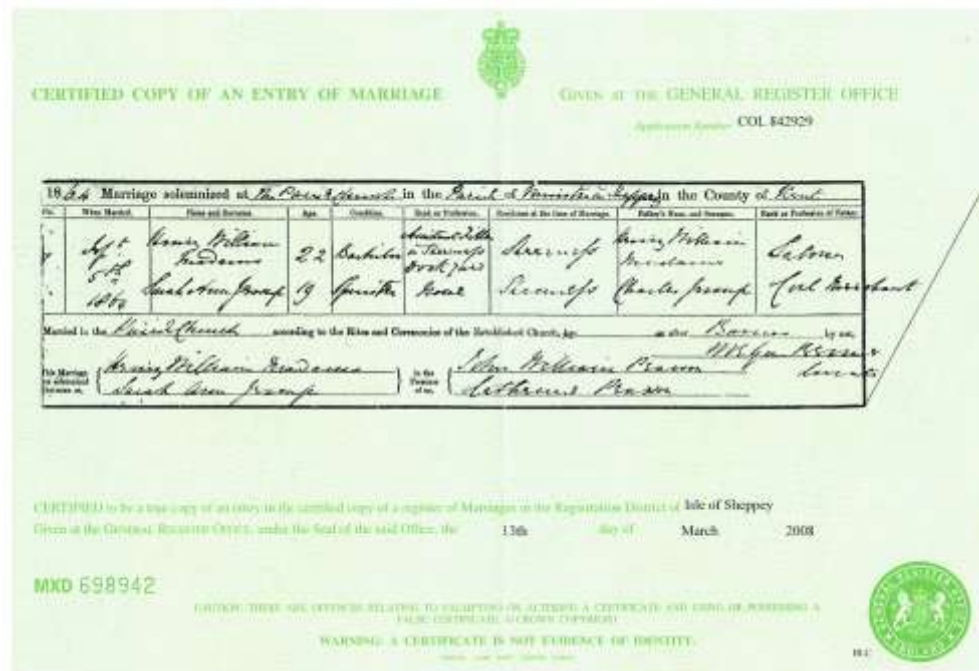 CERTIFIED COPY OF AN ENTRY OF MARRIAGE
GIVEN AT THE GENERAL REGISTER OFFICE
Application Number COL 842929
1864 Marriage solemnized at The Parish Church in the Parish of Minster in Sheppey in the County of Kent
No. When Married. Name and Surname. Age. Condition. Rank or Profession. Residence at the time of Marriage. Father's Name and Surname. Rank or Profession of Father.
Sept 5th 1864 Henry William 22 Bachelor in Sheerness Dock Yard Sheerness Henry William
Sarah Ann 19 Spinster None Sheerness Charles Coal Merchant
Married in the Parish Church according to the Rites and Ceremonies of the Established Church, by after Banns by me,
This Marriage was solemnized between us, Henry William in the Presence of us, John William Pearson
Sarah Ann Catherine Pearson Curate
CERTIFIED to be a true copy of an entry in the certified copy of a register of Marriages in the Registration District of Isle of Sheppey
Given at the GENERAL REGISTER OFFICE, under the Seal of the said Office, the 13th day of March 2008
MXD 698942
CAUTION: THERE ARE OFFENCES RELATING TO FALSIFYING OR ALTERING A CERTIFICATE AND USING OR POSSESSING A
FALSE CERTIFICATE. ©CROWN COPYRIGHT
WARNING: A CERTIFICATE IS NOT EVIDENCE OF IDENTITY.
GENERAL REGISTER OFFICE ENGLAND